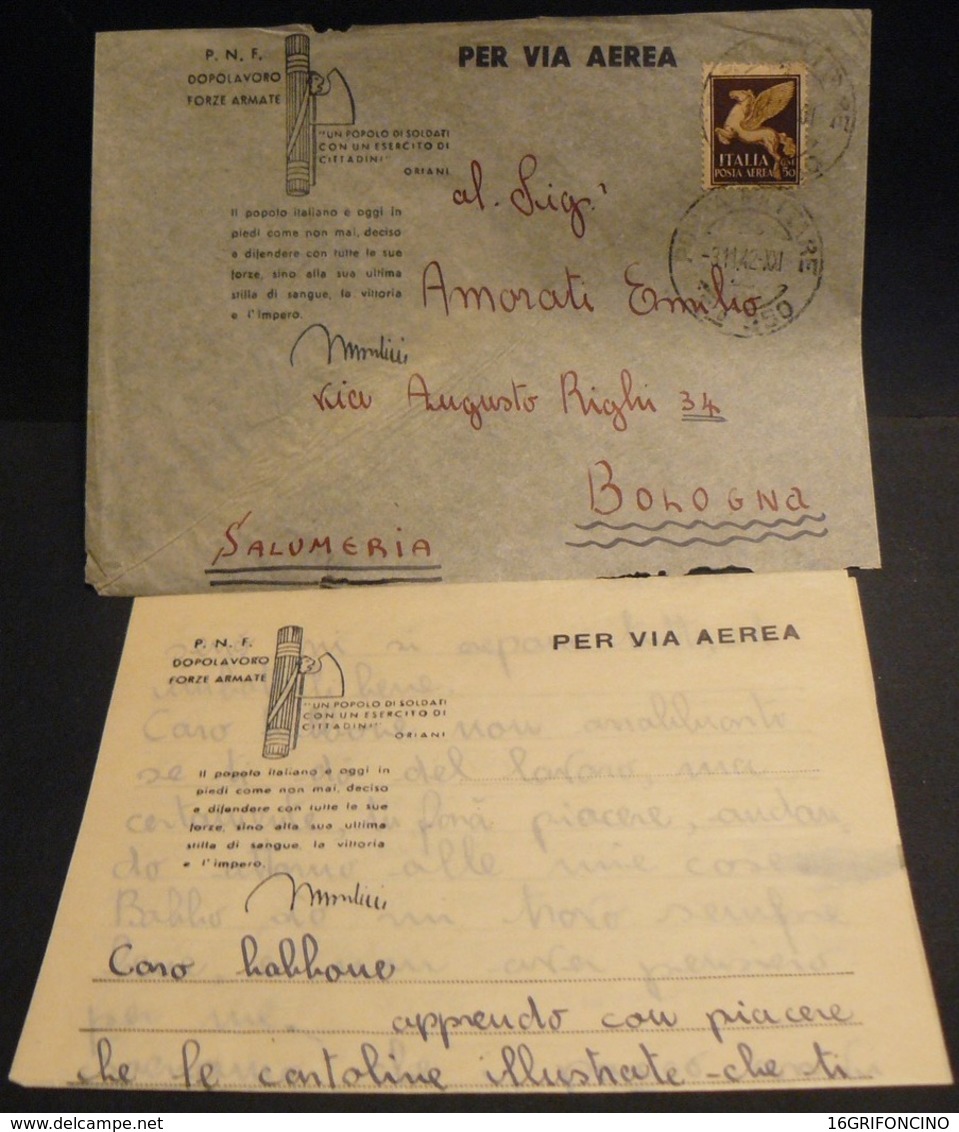 P. N. F.
DOPOLAVORO
FORZE ARMATE
PER VIA AEREA
"UN POPOLO DI SOLDATI
CON UN ESERCITO DI
CITTADINI"
ORIANI
Il popolo italiano è oggi in
piedi come non mai, deciso
a difendere con tutte le sue
forze, sino alla sua ultima
stilla di sangue, la vittoria
e l'impero.
Mussolini
ITALIA
POSTA AEREA
CENT 50
POSTA MILITARE
-9.11.42-XXI
al. Sig.
Amorati Emilio
via Augusto Righi 34
BOLOGNA
SALUMERIA
P. N. F.
DOPOLAVORO
FORZE ARMATE
PER VIA AEREA
"UN POPOLO DI SOLDATI
CON UN ESERCITO DI
CITTADINI"
ORIANI
Il popolo italiano è oggi in
piedi come non mai, deciso
a difendere con tutte le sue
forze, sino alla sua ultima
stilla di sangue, la vittoria
e l'impero.
Mussolini
Caro babbone
apprendo con piacere
che le cartoline illustrate che ti
16GRIFONCINO